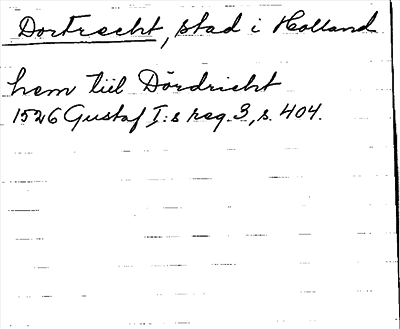 Dortrecht, stad i Holland
hem till Dördricht
1526 Gustaf I:s reg. 3, s. 404.